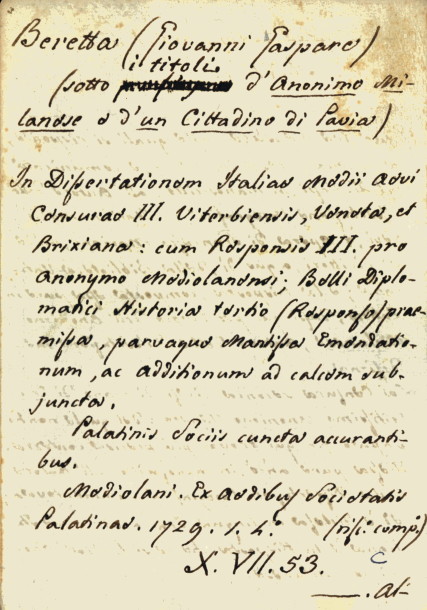 Beretta (Giovanni Gaspare)
i titoli
(sotto d'Anonimo Mi-
lanese e d'un Cittadino di Pavia)
In Dissertationem Italiae Medii Aevi
Censurae III. Viterbiensis, Veneta, et
Brixiana: cum Responsis III. pro
Anonymo Mediolanensi; Belli Diplo-
matici Historia tertio (Responso) prae-
missa, parvaque Mantissa Emendatio-
num, ac additionum ad calcem sub-
juncta.
Palatinis Sociis cuncta accuranti-
bus.
Mediolani. Ex Aedibus Societatis
Palatinae. 1729. 1. 4.°
X. VII. 53. C
—. at